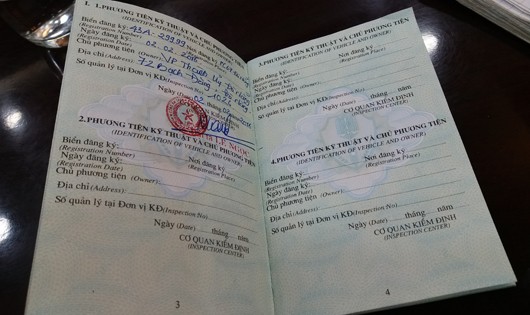 1. 1.PHƯƠNG TIỆN KỸ THUẬT VÀ CHỦ PHƯƠNG TIỆN
(IDENTIFICATION OF VEHICLE AND OWNER)
Biển đăng ký: 43A-29999
(Registration Number)
Ngày đăng ký: 02.02
(Registration Date)
Chủ phương tiện (Owner): VP Thành Uỷ Đà Nẵng
Địa chỉ (Address): 72 Bạch Đằng
Số quản lý tại Đơn vị KĐ (Inspection No)
Ngày (Date)
LÊ NGỌC
2.PHƯƠNG TIỆN KỸ THUẬT VÀ CHỦ PHƯƠNG TIỆN
(IDENTIFICATION OF VEHICLE AND OWNER)
Biển đăng ký: Nơi đăng ký:
(Registration Number) (Registration Place)
Ngày đăng ký:
(Registration Date)
Chủ phương tiện (Owner):
Địa chỉ (Address):
Số quản lý tại Đơn vị KĐ (Inspection No)
Ngày (Date) tháng năm
CƠ QUAN KIỂM ĐỊNH
(INSPECTION CENTER)
3
3.PHƯƠNG TIỆN KỸ THUẬT VÀ CHỦ PHƯƠNG TIỆN
(IDENTIFICATION OF VEHICLE AND OWNER)
Biển đăng ký: Nơi đăng ký:
(Registration Number) (Registration Place)
Ngày đăng ký:
(Registration Date)
Chủ phương tiện (Owner):
Địa chỉ (Address):
Số quản lý tại Đơn vị KĐ (Inspection No)
Ngày (Date) tháng năm
CƠ QUAN KIỂM ĐỊNH
(INSPECTION CENTER)
4.PHƯƠNG TIỆN KỸ THUẬT VÀ CHỦ PHƯƠNG TIỆN
(IDENTIFICATION OF VEHICLE AND OWNER)
Biển đăng ký: Nơi đăng ký:
(Registration Number) (Registration Place)
Ngày đăng ký:
(Registration Date)
Chủ phương tiện (Owner):
Địa chỉ (Address):
Số quản lý tại Đơn vị KĐ (Inspection No)
Ngày (Date) tháng năm
CƠ QUAN KIỂM ĐỊNH
(INSPECTION CENTER)
4